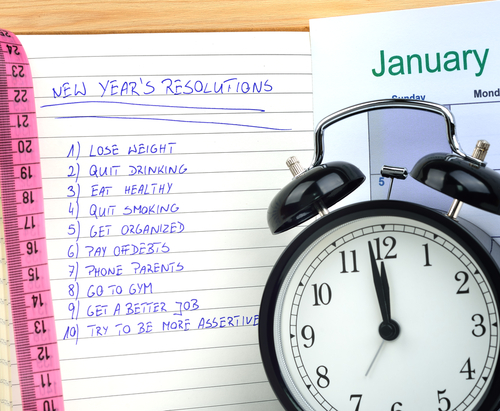 NEW YEAR'S RESOLUTIONS
1) LOSE WEIGHT
2) QUIT DRINKING
3) EAT HEALTHY
4) QUIT SMOKING
5) GET ORGANIZED
6) PAY OF DEBTS
7) PHONE PARENTS
8) GO TO GYM
9) GET A BETTER JOB
10) TRY TO BE MORE ASSERTIVE
January
Sunday Mond
5
11 12 1
10 2
9 3
8 4
7 6 5
24
23
22
21
20
19
18
17
16
15
14
13
12
11
10